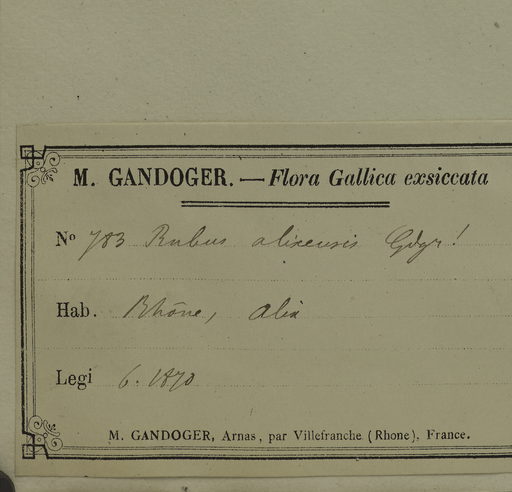 M. GANDOGER. — Flora Gallica exsiccata
Nº 783 Rubus alixensis Gdgr!
Hab. Rhône, Alix
Legi 6. 1870
M. GANDOGER, Arnas, par Villefranche (Rhone). France.